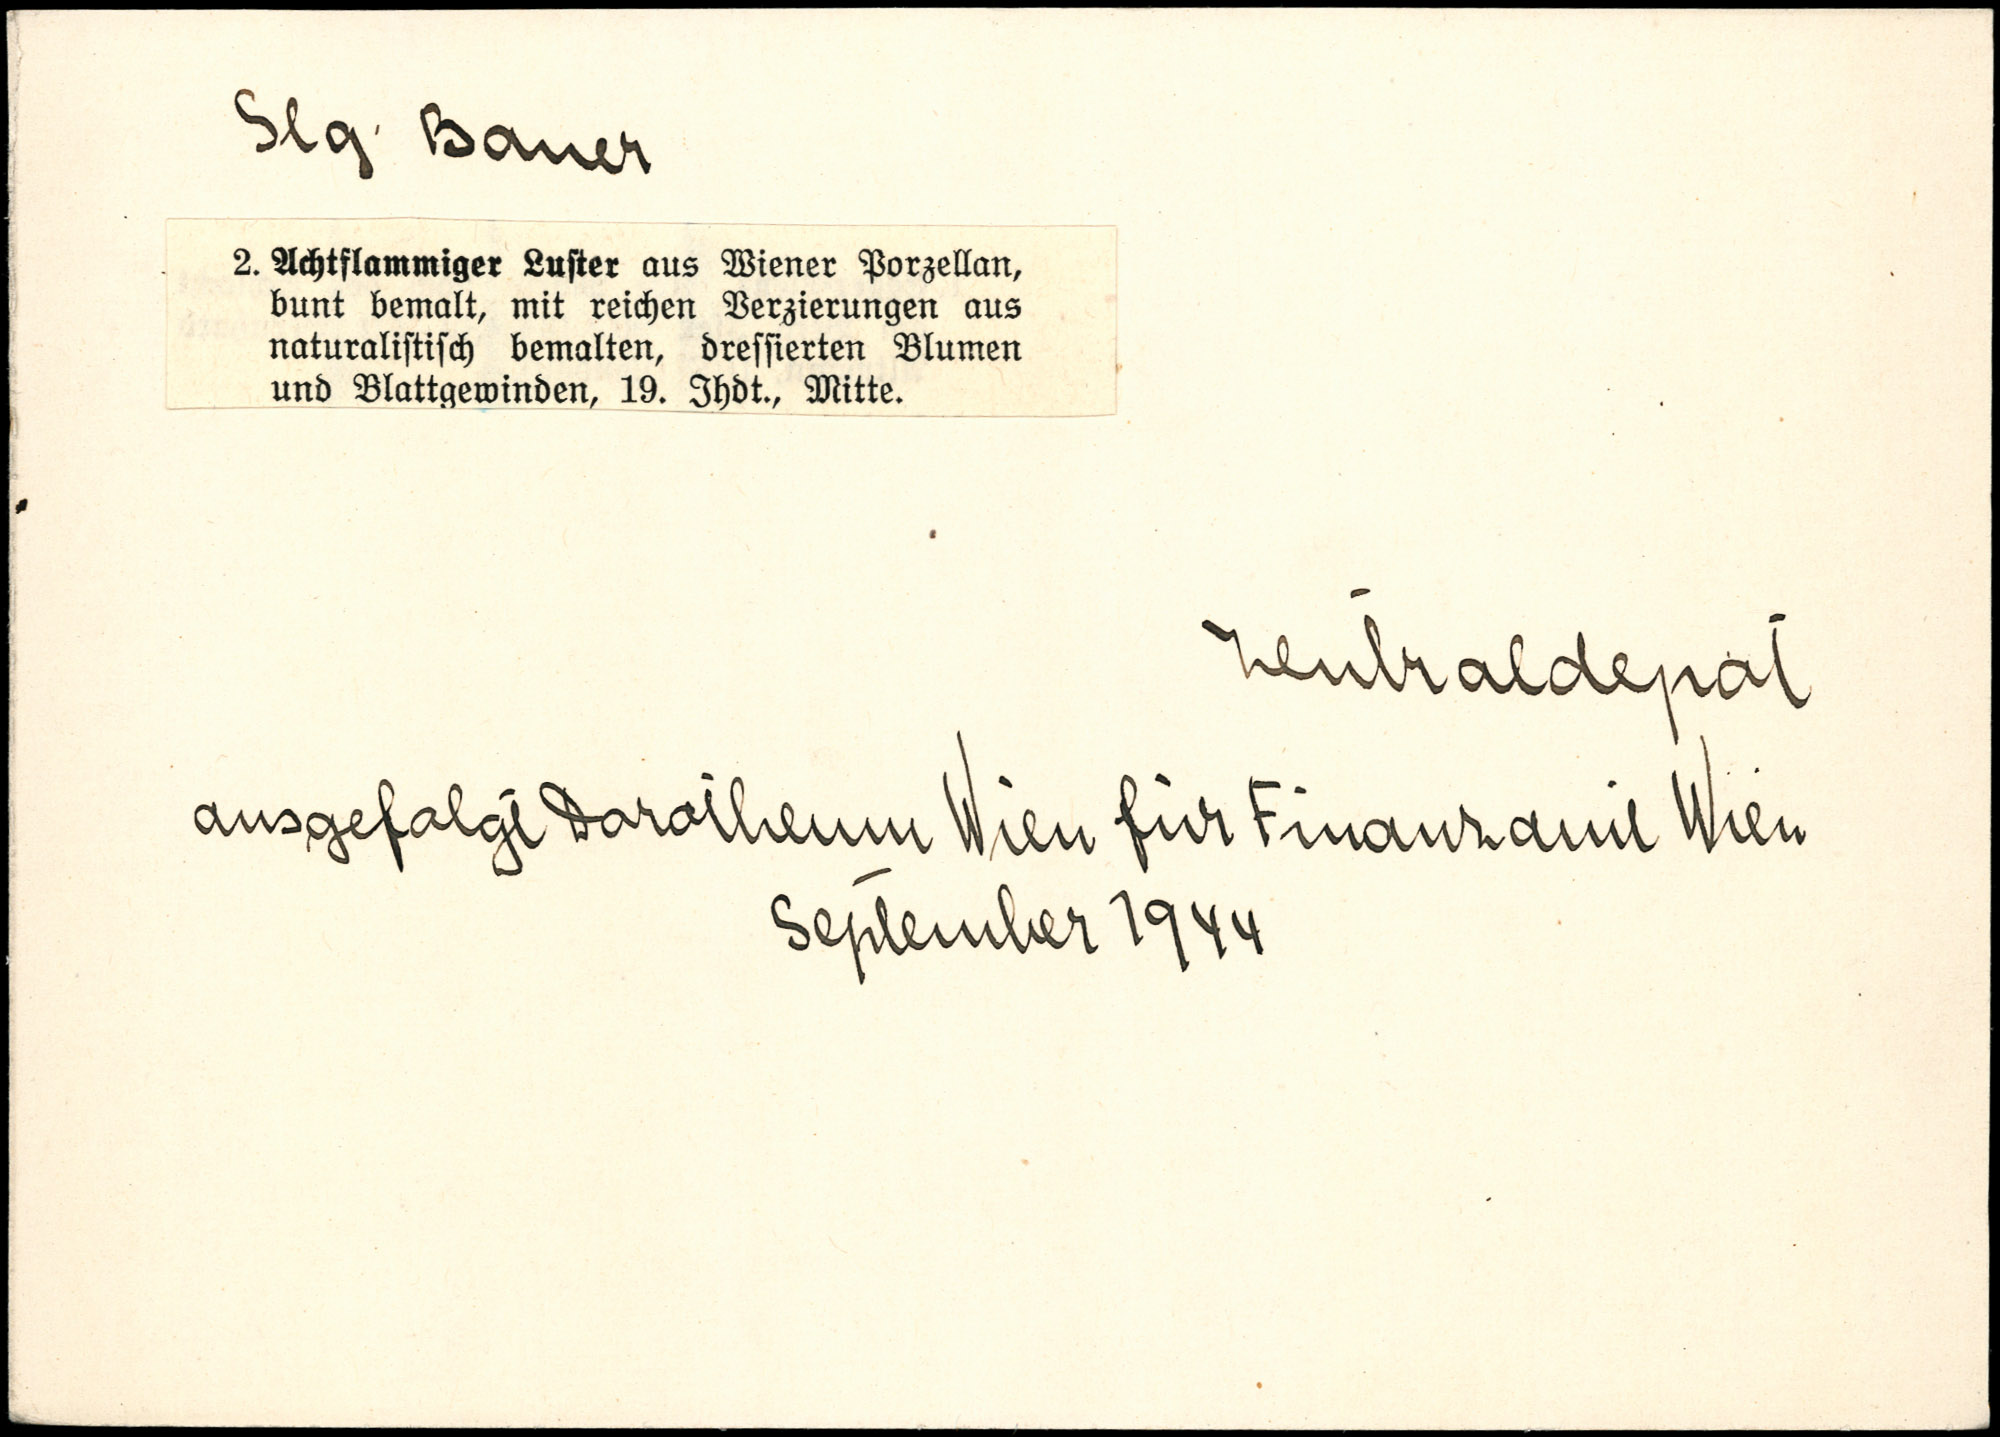 Slg. Bauer
2. Achtflammiger Luster aus Wiener Porzellan,
bunt bemalt, mit reichen Verzierungen aus
naturalistisch bemalten, dressierten Blumen
und Blattgewinden, 19. Jhdt., Mitte.
Zentraldepot
ausgefolgt Dorotheum Wien für Finanzamt Wien
September 1944